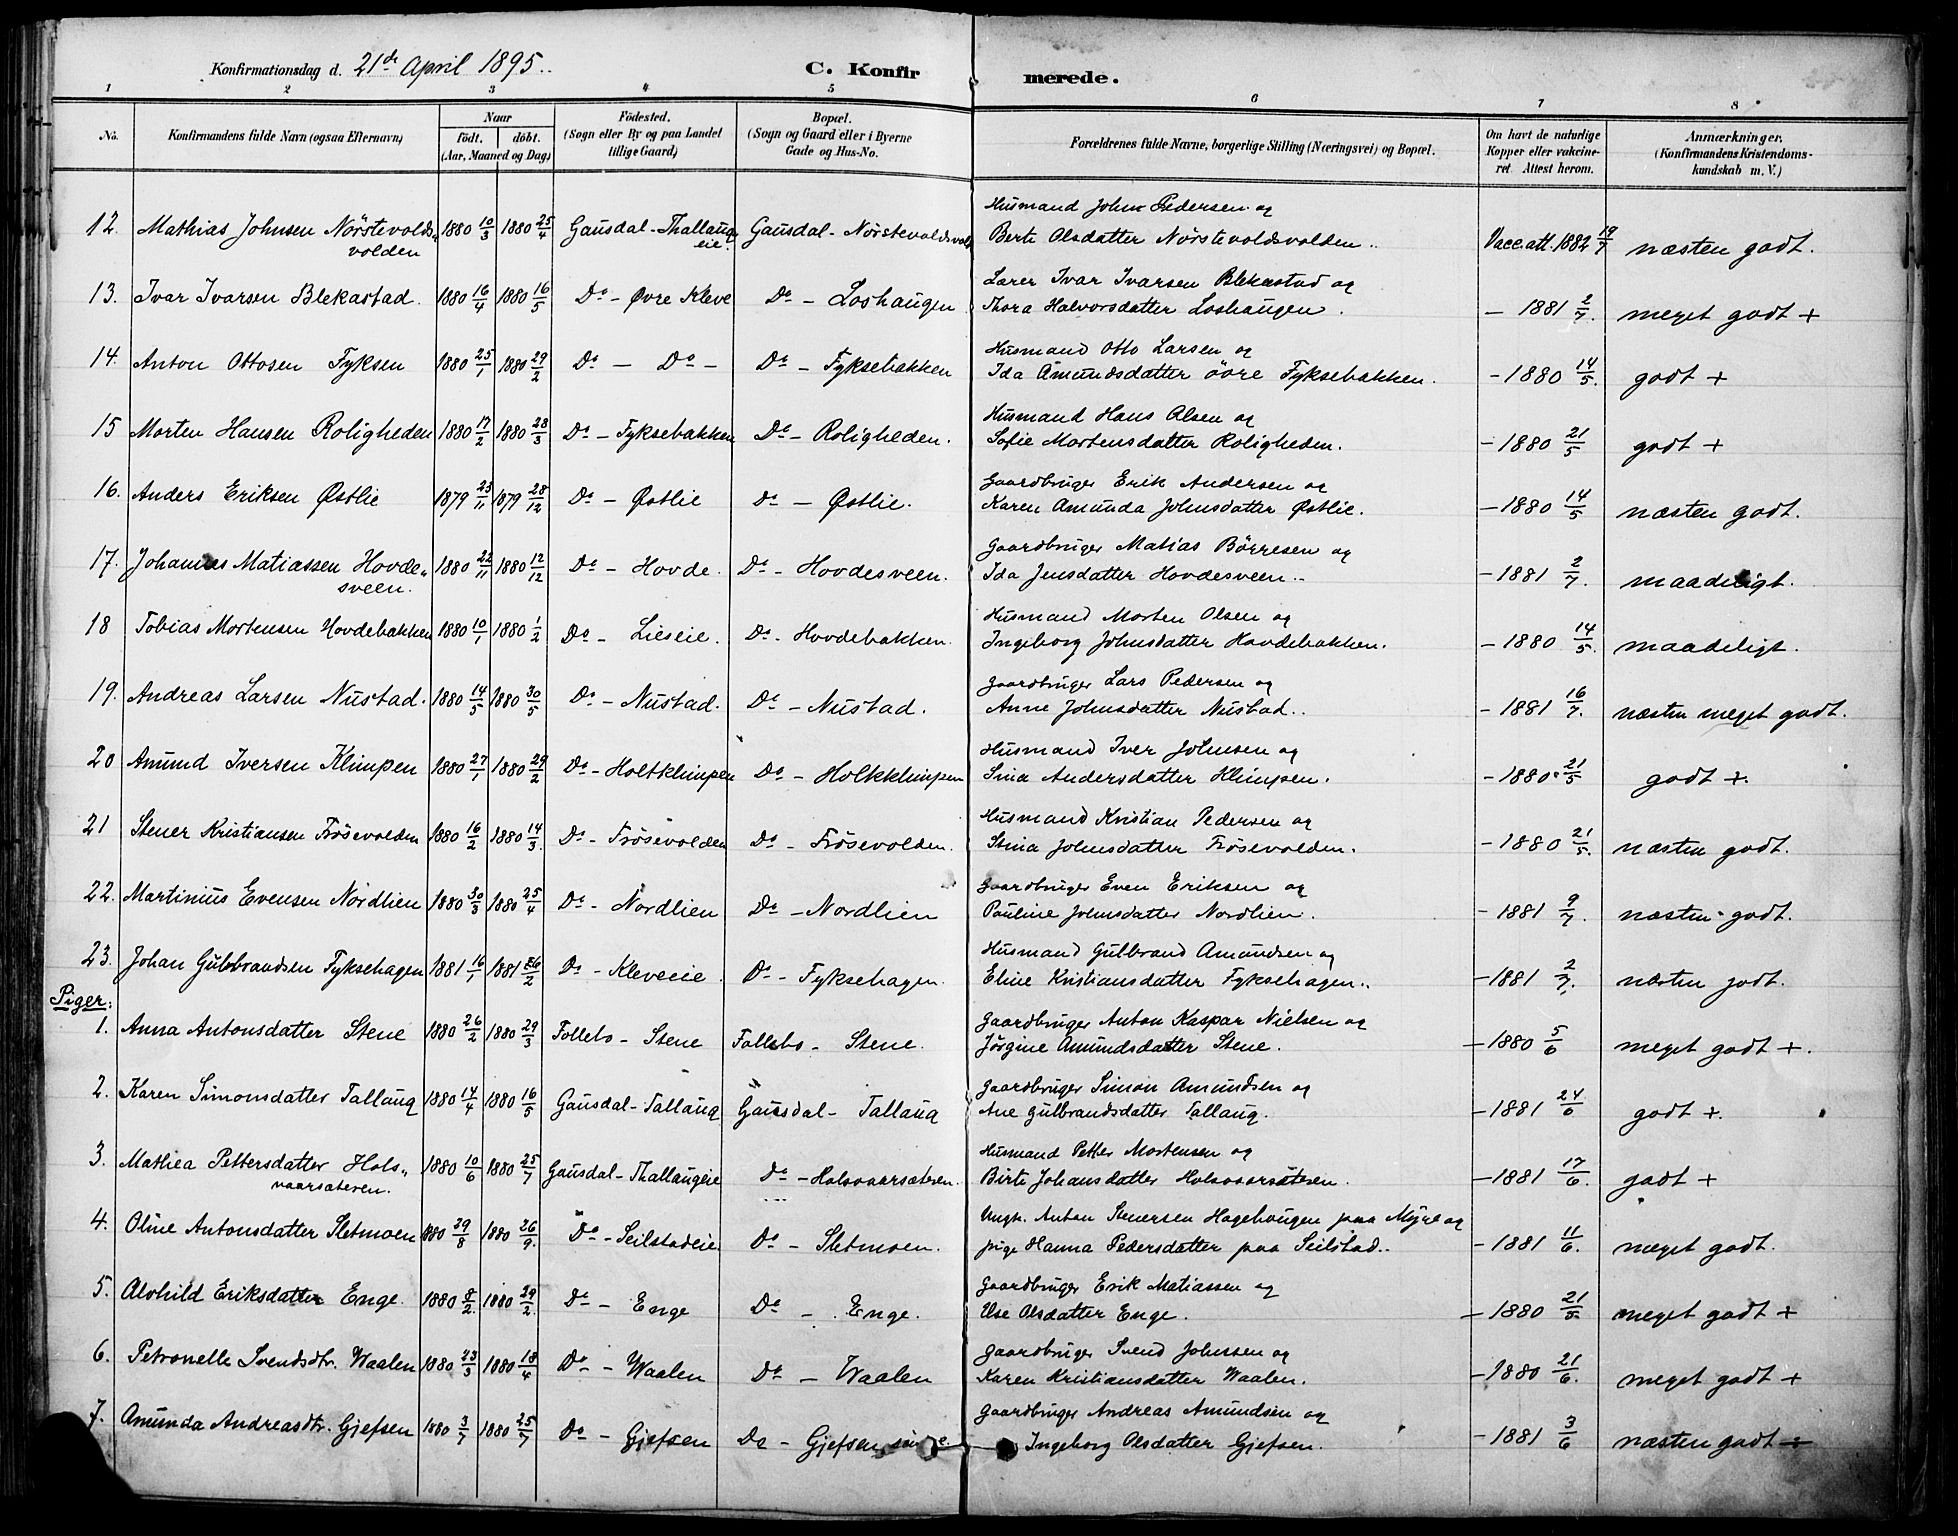 Konfirmationsdag d. 21de April 1895.
C. Konfirmerede.
1 2 3 4 5 6 7 8
No. Konfirmandens fulde Navn (ogsaa Efternavn) Naar født. døbt. (Aar, Maaned og Dag) Födested. (Sogn eller By og paa Landet tillige Gaard) Bopæl. (Sogn og Gaard eller i Byerne Gade og Hus-No. Forældrenes fulde Navne, borgerlige Stilling (Næringsvei) og Bopæl. Om havt de naturlige Kopper eller vakcineret. Attest herom. Anmærkninger. (Konfirmandens Kristendomskundskab m. V.)
12. Mathias Johnsen Nörstevolds„ 1880 10/3 1880 25/4 Gausdal - Thallaug Gausdal - Nörstevoldsvold Husmand John Pedersen og
volden eie. Berte Olsdatter Nörstevoldsvolden Vacc.att. 1882 19/7 næsten godt.
13. Ivar Ivarsen Blekastad 1880 16/4 1880 16/5 Do - Øvre Kleve Do - Loshaugen Lærer Ivar Ivarsen Blekastad og
Thora Halvorsdatter Loshaugen. - 1881 2/7. meget godt +
14. Anton Ottosen Fyksen 1880 25/1 1880 29/2 Do - Do - Do - Fyksebakken Husmand Otto Larsen og
Ida Amundsdatter övre Fyksebakken. - 1880 14/5. godt +
15 Morten Hansen Roligheden 1880 17/2 1880 28/3 Do - Fyksebakken Do - Roligheden. Husmand Hans Olsen og
Sofie Mortensdatter Roligheden. - 1880 21/5 godt +
16. Anders Eriksen Østlie 1879 23/11 1879 28/12 Do - Østlie Do - Østlie. Gaardbruger Erik Andersen og
Karen Amunda Johnsdatter Østlie. - 1880 14/5 næsten godt.
17. Johannes Matiassen Hovde„ 1880 22/11 1880 12/12 Do - Hovde. Do - Hovdesveen. Gaardbruger Matias Börresen og
sveen. Ida Jensdatter Hovdesveen. - 1881 2/7. maadeligt.
18 Tobias Mortensen Hovdebakken 1880 10/1 1880 1/2 Do - Lieseie. Do - Hovdebakken. Husmand Morten Olsen og
Ingeborg Johnsdatter Hovdebakken. - 1880 14/5. maadeligt.
19. Andreas Larsen Nustad. 1880 14/5 1880 30/5 Do - Nustad. Do - Nustad. Gaardbruger Lars Pedersen og
Anne Johnsdatter Nustad. - 1881 16/7. næsten meget godt.
20 Amund Iversen Klimpen 1880 27/1 1880 29/2 Do - Holtklimpen Do - Holkklimpen Husmand Iver Johnsen og
Sina Andersdatter Klimpen. - 1880 21/5 godt +.
21 Stener Kristiansen Frösevolden 1880 16/2 1880 14/3. Do - Frösevolden Do - Frösevolden. Husmand Kristian Pedersen og
Stina Johnsdatter Frösevolden. - 1880 21/5. næsten godt.
22. Martinius Evensen Nordlien 1880 30/3 1880 25/4 Do - Nordlien Do - Nordlien Gaardbruger Even Eriksen og
Pauline Johnsdatter Nordlien. - 1881 9/7. næsten godt.
23. Johan Gulbrandsen Fyksehagen 1881 16/1 1881 /2 Do - Kleveeie. Do - Fyksehagen. Husmand Gulbrand Amundsen og
Eline Kristiansdatter Fyksehagen. - 1881 2/7. næsten godt.
Piger:
1. Anna Antonsdatter Stene 1880 26/2 1880 29/3 Follebo - Stene Follebo - Stene. Gaardbruger Anton Kaspar Nielsen og
Jörgine Amundsdatter Stene. - 1880 5/6 meget godt +.
2. Karen Simonsdatter Tallaug 1880 14/4 1880 16/5 Gausdal - Tallaug Gausdal - Tallaug Gaardbruger Simon Amundsen og
Ane Gulbrandsdatter Tallaug. - 1881 24/6 godt +.
3. Mathea Pettersdatter Hols„ 1880 10/6 1880 25/7 Gausdal - Thallaugeie Do - Holsvaarsæteren. Husmand Petter Mortensen og
vaarsæteren. Birte Johansdatter Holsvaarsæteren. - 1881 17/6. godt +
4. Oline Antonsdatter Sletmoen 1880 29/8 1880 26/9. Do - Seilstadeie Do - Sletmoen. Ungk. Anton Stenersen Hagehaugen paa Myre og
pige Hanna Pedersdatter paa Seilstad. - 1881 11/6. meget godt.
5. Alvhild Eriksdatter Enge. 1880 8/2. 1880 29/2. Do - Enge Do - Enge. Gaardbruger Erik Matiassen og
Ilse Olsdatter Enge. - 1880 21/5 meget godt +
6. Petronelle Svendsdtr. Waalen 1880 23/3 1880 18/4 Do - Waalen Do - Waalen Gaardbruger Svend Johnsen og
Karen Kristiansdatter Waalen. - 1880 21/6. meget godt +
7. Amunda Andreasdtr. Gjefsen 1880 3/7 1880 25/7 Do - Gjefsen Do - Gjefsen Gaardbruger Andreas Amundsen og
Ingeborg Olsdatter Gjefsen. - 1881 3/6 næsten godt +